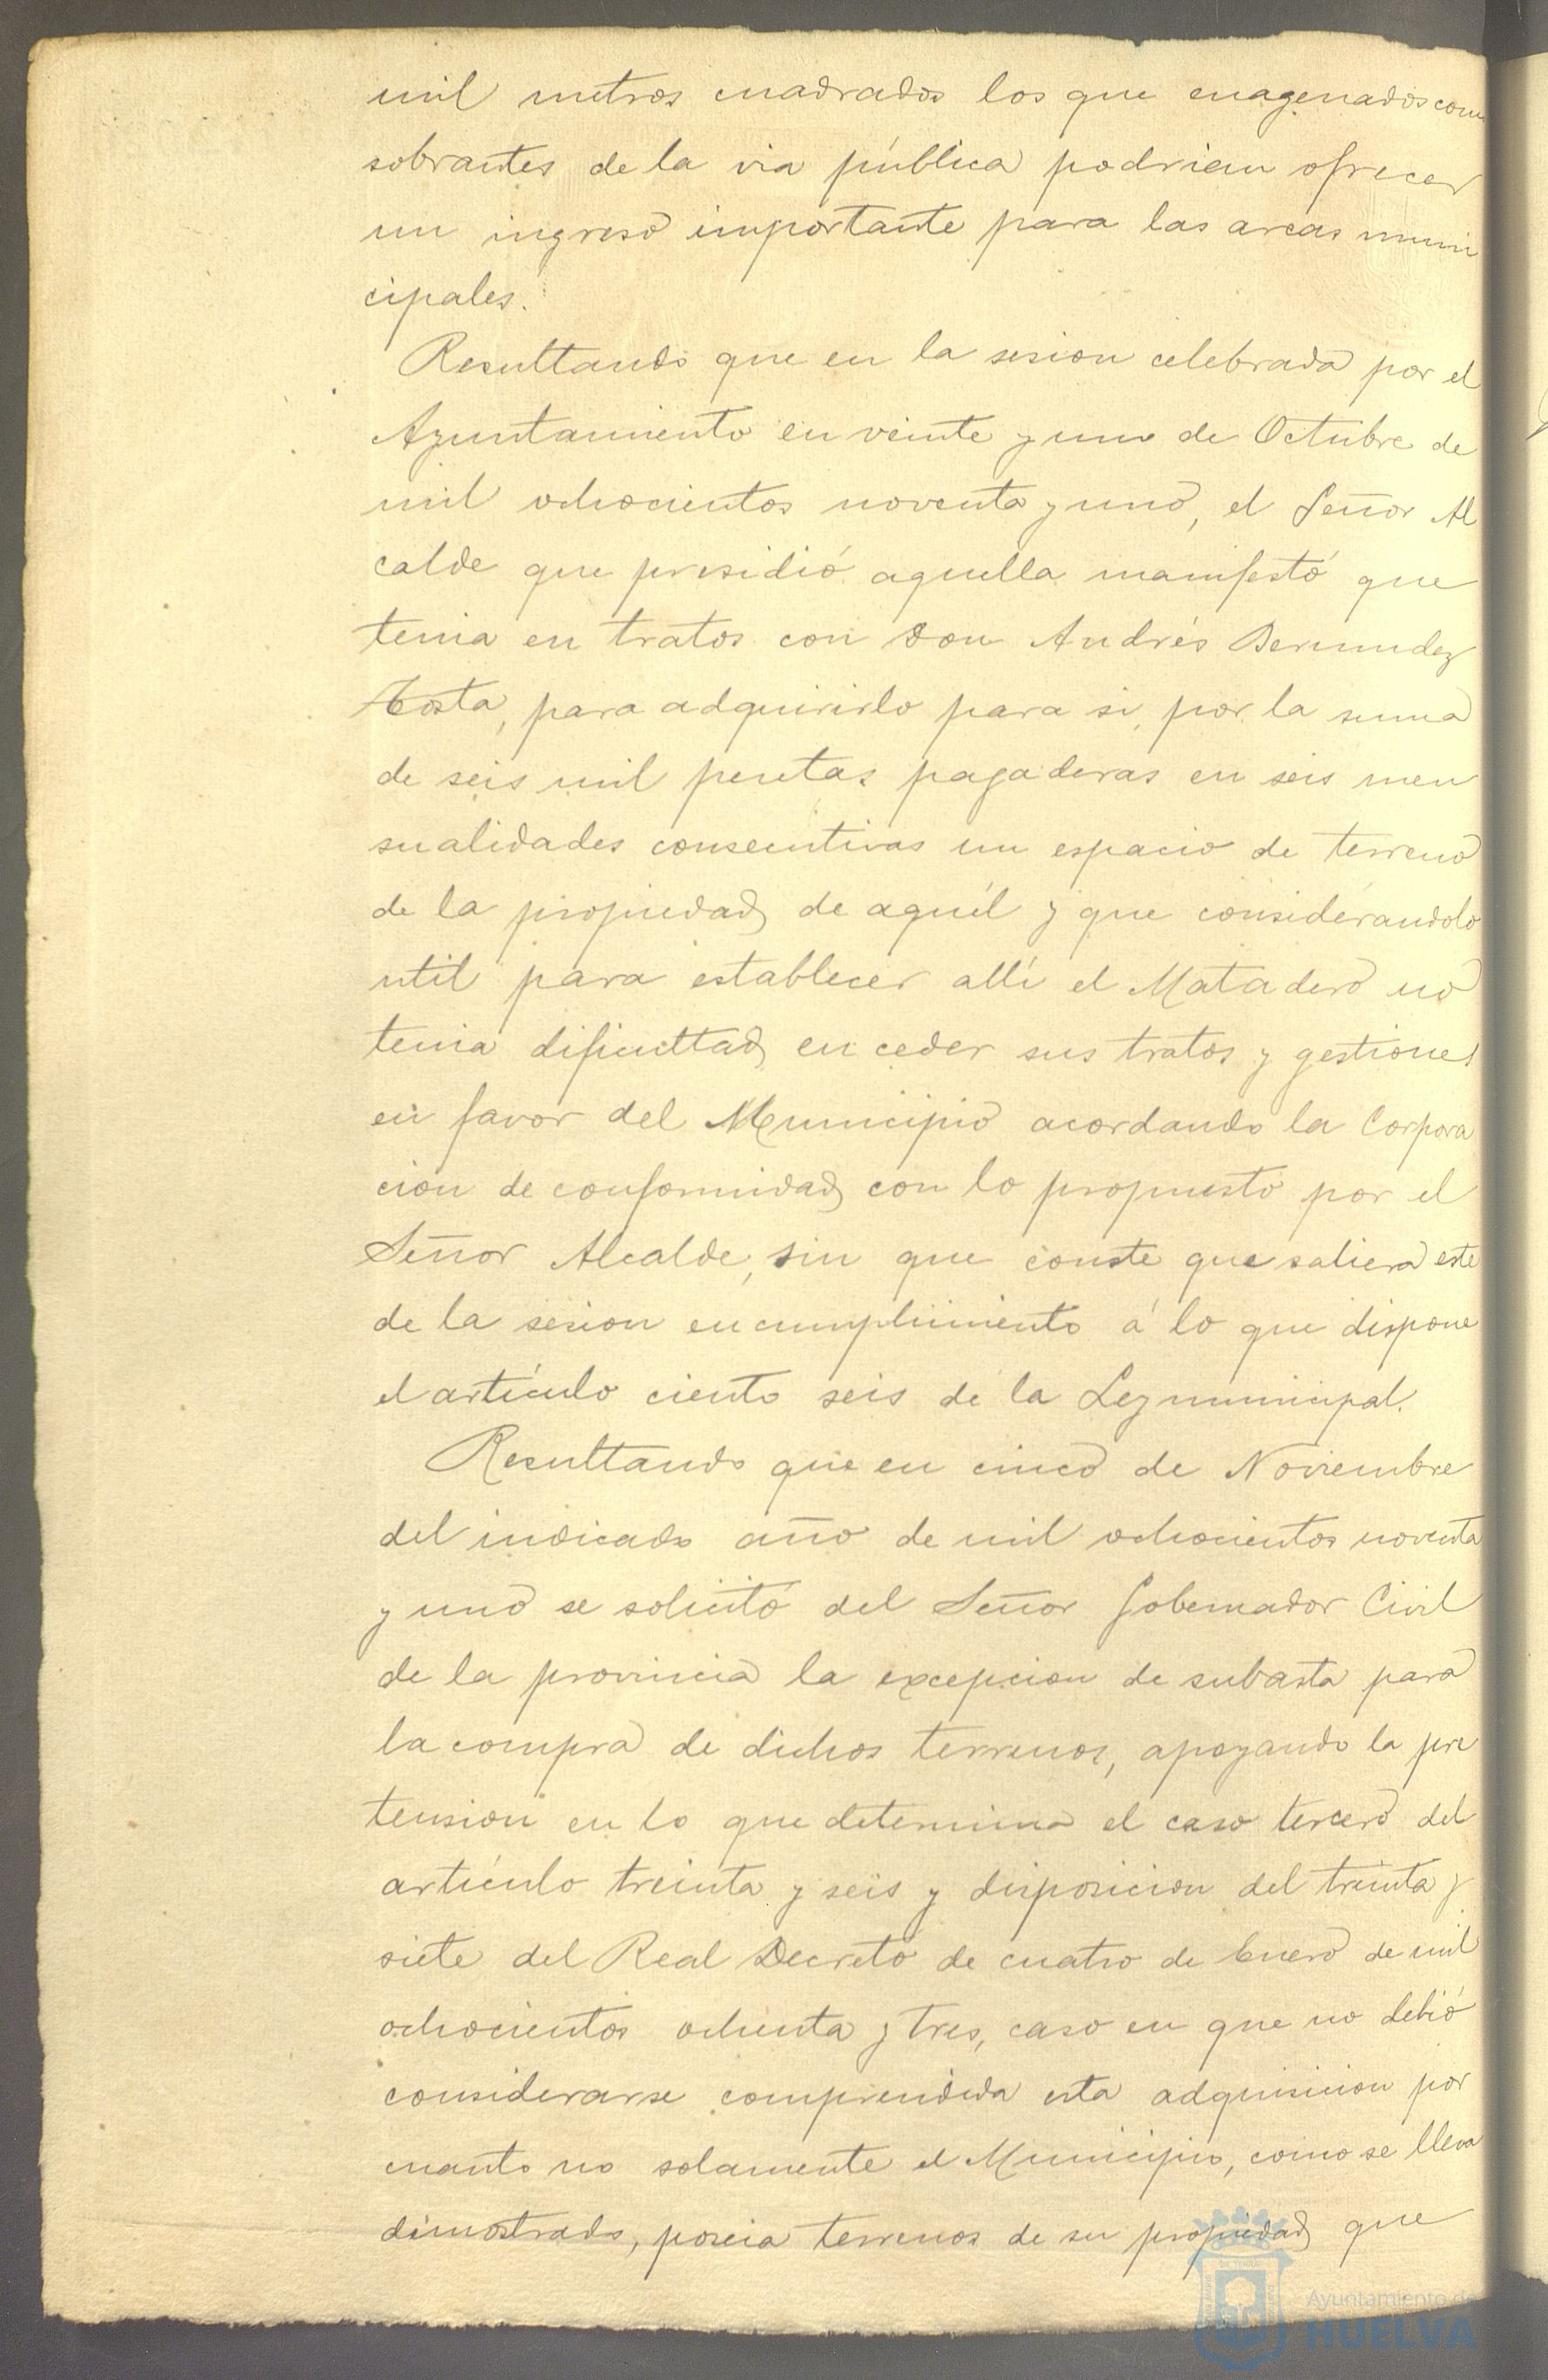 mil metros cuadrados los que enagenados como
sobrantes de la via pública podrian ofrecer
un ingreso importante para las arcas muni
cipales.
Resultando que en la sesion celebrada por el
Ayuntamiento en veinte y uno de Octubre de
mil ochocientos noventa y uno, el Señor Al
calde que presidió aquella manifestó que
tenia en tratos con Don Andrés Bermudez
Costa, para adquirirlo para si, por la suma
de seis mil pesetas pagaderas en seis men
sualidades consecutivas un espacio de terreno
de la propiedad de aquél y que considerandolo
util para establecer allí el Matadero no
tenia dificultad en ceder sus tratos y gestiones
en favor del Municipio acordando la Corpora
cion de conformidad con lo propuesto por el
Señor Alcalde, sin que conste que saliera este
de la sesion en cumplimiento á lo que dispone
el artículo ciento seis de la Ley municipal.
Resultando que en cinco de Noviembre
del indicado año de mil ochocientos noventa
y uno se solicitó del Señor Gobernador Civil
de la provincia la excepcion de subasta para
la compra de dichos terrenos, apoyando la pre
tension en lo que determina el caso tercero del
artículo treinta y seis y disposicion del treinta y
siete del Real Decreto de cuatro de Enero de mil
ochocientos ochenta y tres, caso en que no debió
considerarse comprendida esta adquisicion por
cuanto no solamente el Municipio, como se lleva
dimostrado, poseia terrenos de su propiedad que
Ayuntamiento de
HUELVA